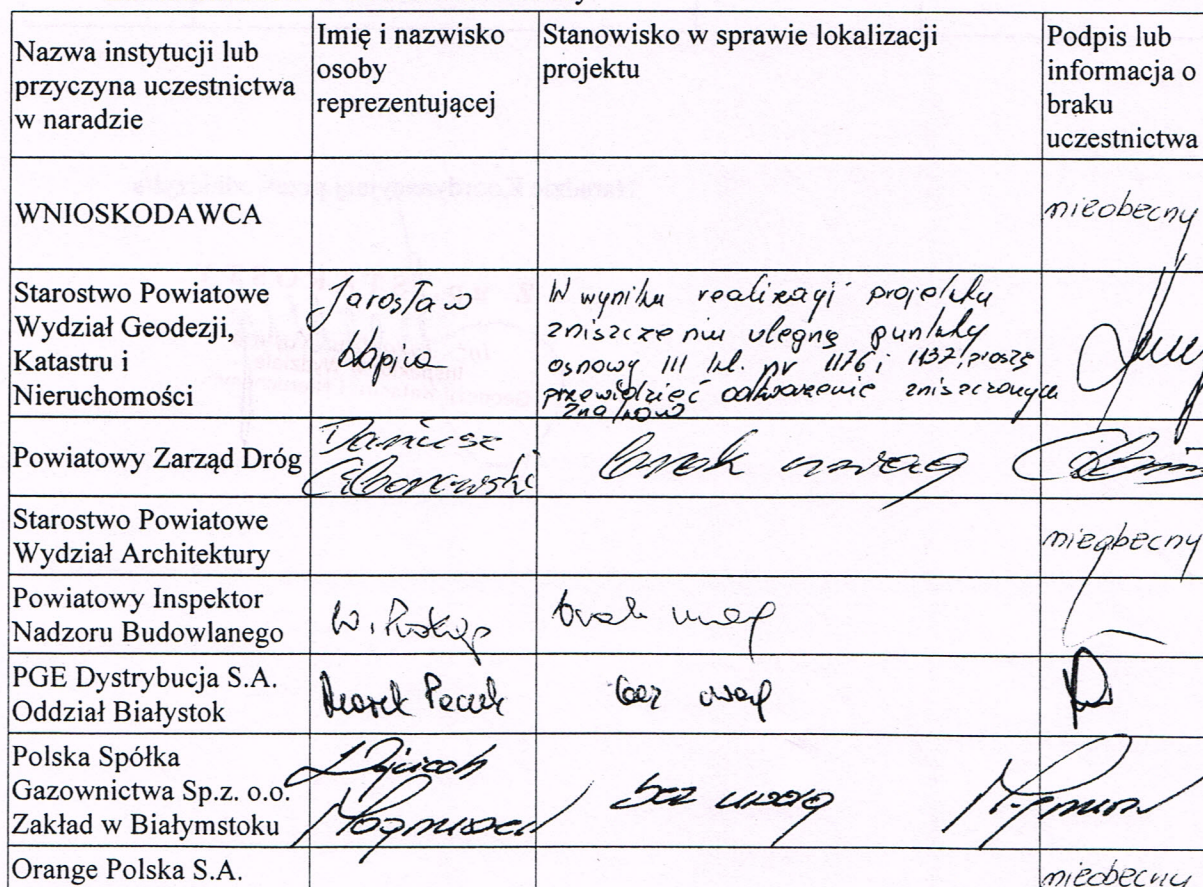 Nazwa instytucji lub
przyczyna uczestnictwa
w naradzie
Imię i nazwisko
osoby
reprezentującej
Stanowisko w sprawie lokalizacji
projektu
Podpis lub
informacja o
braku
uczestnictwa
WNIOSKODAWCA
nieobecny
Starostwo Powiatowe
Wydział Geodezji,
Katastru i
Nieruchomości
Jarosław
Łapio
W wyniku realizacji projektu
zniszczeniu ulegną punkty
osnowy III kl. nr 1176 i 1137, proszę
przewidzieć odtworzenie zniszczonych
znaków
Powiatowy Zarząd Dróg
Dariusz
brak uwag
Starostwo Powiatowe
Wydział Architektury
nieobecny
Powiatowy Inspektor
Nadzoru Budowlanego
W. Prokop
brak uwag
PGE Dystrybucja S.A.
Oddział Białystok
Marek
bez uwag
Polska Spółka
Gazownictwa Sp.z. o.o.
Zakład w Białymstoku
Wojciech
bez uwag
Orange Polska S.A.
nieobecny